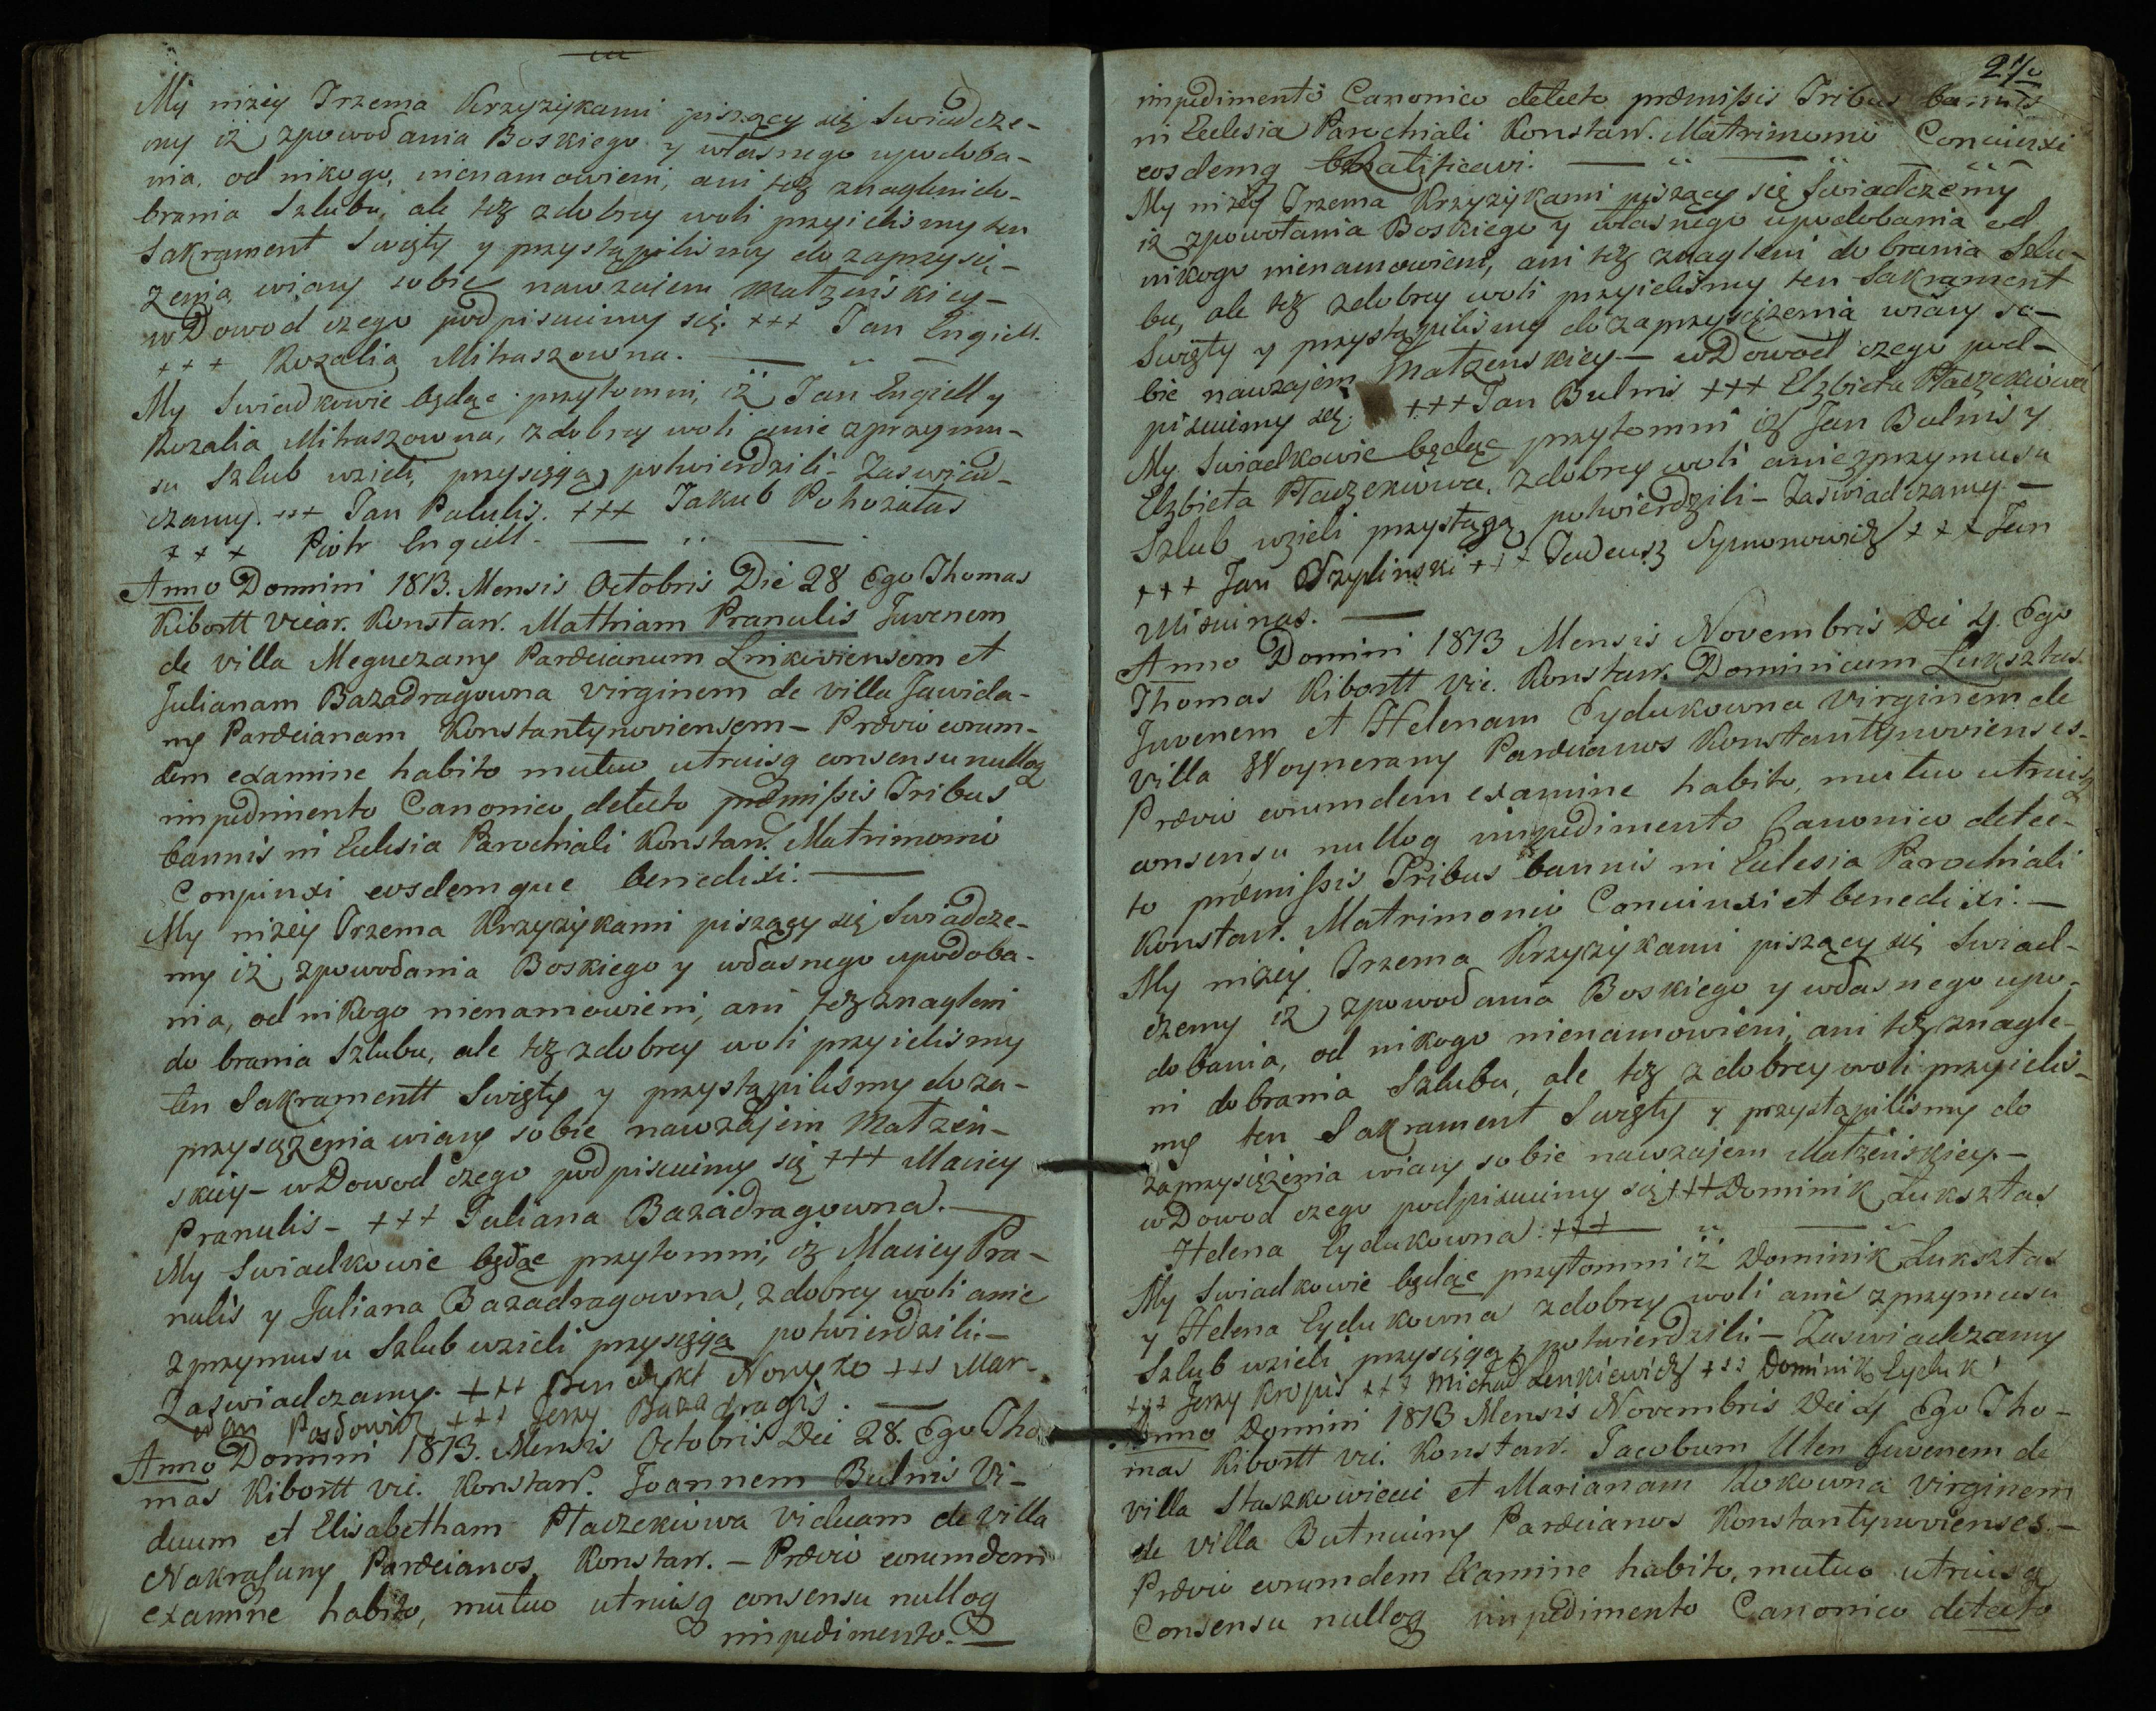 My niżey Trzema Krzyżykami piszący się Swiadcze-
my iż zpowodania Boskiego y własnego upodoba-
nia, od nikogo, nienamowieni, ani też znagleni do-
brania Szlubu, ale też zdobrey woli przyielismy ten
Sakrament Swięty y przystąpilismy do zaprzysię-
żenia wiary sobie nawzaiem Małżeńskiey-
wDowod czego podpisuiemy się. +++ Jan Engiell.
+++ Rozalia Mihaszowna.
My Swiadkowie będąc przytomni, iż Jan Engiell y
Rozalia Mihaszowna, zdobrey woli anie zprzymu-
su Szlub wzieli, przysięgą, potwierdzili- Zaswiad-
czamy. +++ Jan Palulis. +++ Jakub Pohozałas
+++ Piotr Engiell.
Anno Domini 1813. Mensis Octobris Die 28 Ego Thomas
Kibortt Vicar. Konstan. Mathiam Pranulis Juvenem
de villa Meguczany Parœcianum Lnikwiensem et
Julianam Bazadragowna virginem de villa Jawida-
ny Parœcianam Konstantynoviensem- Prævio eorum-
dem examine habito mutuo utruisq consensu nulloq
impedimento Canonico detecto præmissis Tribus
bannis in Eclesia Parochiali Konstan. Matrimonio
Conjunxi eosdemque benedixi.
My niżey Trzema Krzyżykami piszący się Swiadcze-
my iż zpowodania Boskiego y własnego upodoba-
nia, od nikogo nienamowieni, ani też znagleni
do brania Szlubu, ale też zdobrey woli przyielismy
ten Sakramentt Swięty y przystąpilismy do za-
przysiężenia wiary sobie nawzajem Małżeń-
skiey- wDowod czego podpisuiemy się +++ Maciey
Pranulis- +++ Juliana Bazadragowna.
My Swiadkowie będąc przytomni, iż Maciey Pra-
nulis y Juliana Bazadragowna, zdobrey woli anie
zprzymusu Szlub wzieli przysięgą potwierdzili.-
Zaswiadczamy. +++ Benedykt Nowyko +++ Mar-
cin Posdowicz +++ Jerzy Bazadragis.
Anno Domini 1813. Mensis Octobris Dei 28. Ego Tho
mas Kibortt vic. Konstan. Joannem Bulnis Vi-
duum et Elisabetham Ptaczekiowa viduam de villa
Nakrasuny Parœcianos Konstan. - Prævio eorumdem
examine habito, mutuo utruisq consensu nulloq
impedimento.
impedimento Canonico detecto præmissis Tribus bannis
in Eclesia Parochiali Konstan. Matrimonio Coniunxi
eosdemq
My niżey Trzema Krzyżykami piszący się Swiadczemy
iż zpowołania Boskiego y własnego upodobania od
nikogo nienamowieni, ani też znagleni do brania Szlu-
bu, ale też zdobrey woli przyielismy ten Sakrament
Swięty y przystąpilismy do zaprzysiężenia wiary so-
bie nawzajem Małżenskiey- wDowod czego pod-
pisuiemy się. +++ Jan Bulnis +++ Elzbieta Ptaczekiowa
My Swiadkowie będąc przytomni iż Jan Bulnis y
Elzbieta Ptaczekiowa, zdobrey woli anie zprzymusu
Szlub wzieli przysięgą potwierdzili- Zaswiadczamy-
+++ Jan Szyplinski +++ Tadeusz Symonowicz +++ Jan
Misiunas.
Anno Domini 1813 Mensis Novembris Dei 4. Ego
Thomas Kibortt vic. Konstan. Dominicum Łuksztas
Juvenem et Helenam Eydukowna Virginem de
villa Woynerany Parœcianos Konstantynovienses.
Prævio eorumdem examine habito, mutuo utruisq
consensu nulloq impedimento Canonico detec-
to præmissis Tribus bannis in Eclesia Parochiali
Konstan. Matrimonio Coniunxi et benedixi.-
My niżey Trzema Krzyżykami piszący się Swiad-
czemy iż zpowodania Boskiego y własnego upo-
dobania, od nikogo nienamowieni, ani też znagle-
ni do brania Szlubu, ale też zdobrey woli przyielis-
my ten Sakrament Swięty y przystąpilismy do
zaprzysiężenia wiary sobie nawzajem Małżeńskiey.-
wDowod czego podpisuiemy się +++ Dominik Łuksztas
Helena Eydukowna. +++
My Swiadkowie będąc przytomni iż Dominik Łuksztas
y Helena Eydukowna zdobrey woli anie zprzymusu
Szlub wzieli przysięgą, potwierdzili.- Zaswiadczamy
+++ Jerzy Kropis +++ Michał Lenkiewicz +++ Dominik Eyduk
Anno Domini 1813 Mensis Novembris Dei 4 Ego Tho-
mas Kibortt vic. Konstan. Jacobum Ulen Juvenem de
villa Staszkowicai et Marianam Rokowna virginem
de villa Butruimy Parœcianos Konstantynovienses.-
Prævio eorumdem Examine habito, mutuo utruisq
Consensu nulloq impedimento Canonico detecto